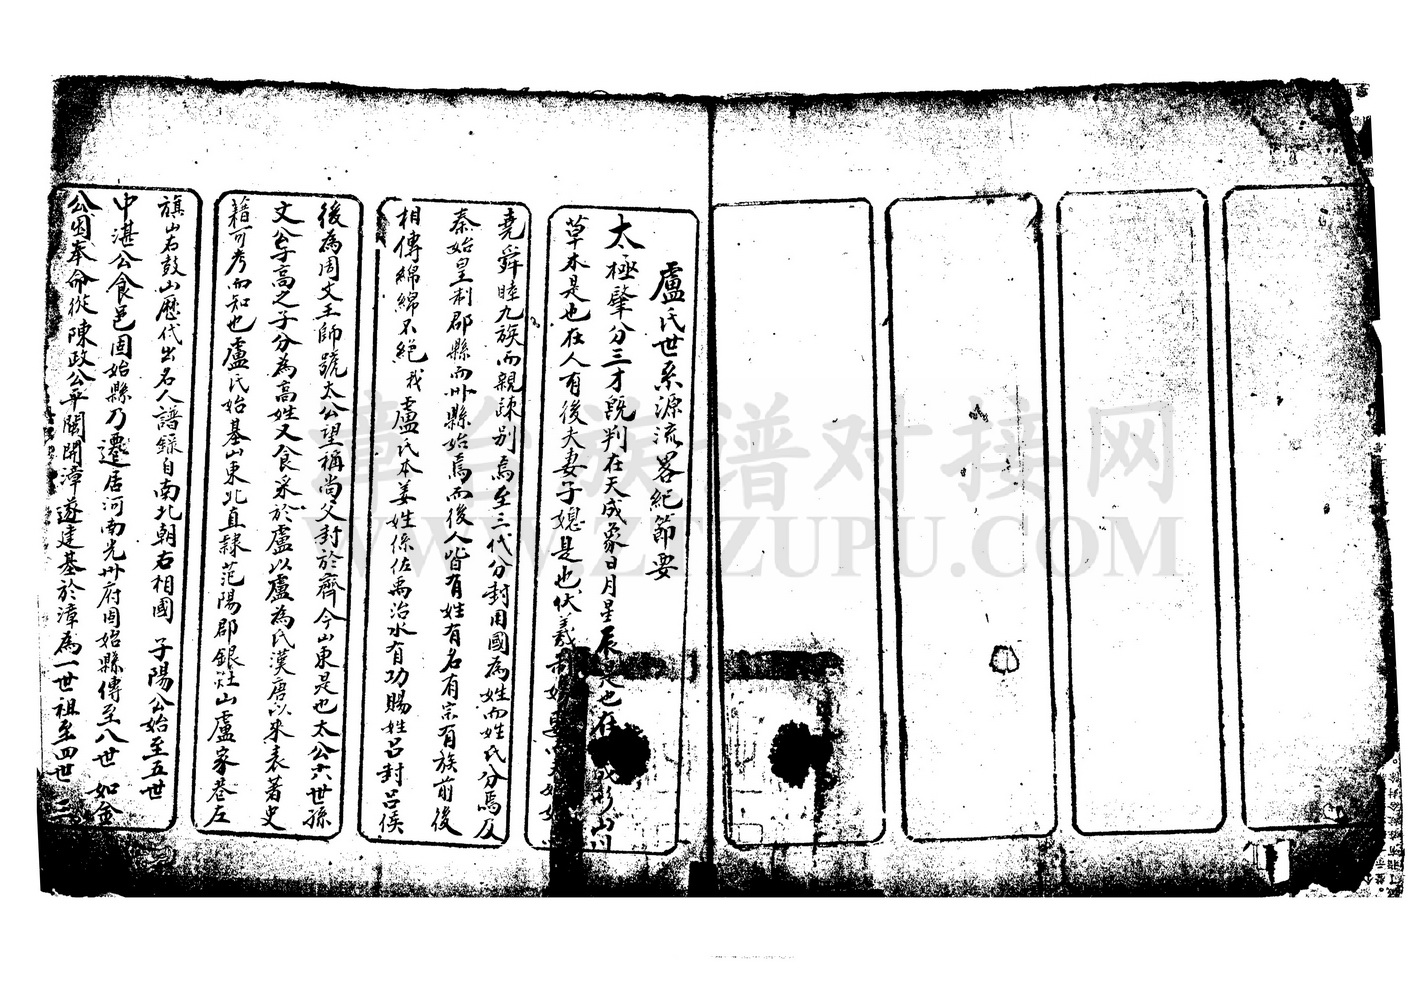 盧氏世系源流畧紀節要
太極肇分三才既判在天成象日月星辰是也在 成形山川
草木是也在人有後夫妻子媳是也伏羲制
堯舜睦九族而親疎別焉至三代分封用國為姓而姓氏分焉及
秦始皇制郡縣而州縣始焉而後人皆有姓有名有宗有族前後
相傳綿綿不絕我盧氏本姜姓係佐禹治水有功賜姓呂封呂侯
後為周文王師號太公望稱尚父封於齊今山東是也太公六世孫
文公子高之子分為高姓又食采於盧以盧為氏漢唐以來表著史
籍可考而知也盧氏始基山東北直隸范陽郡銀 山盧家巷左
旗山右鼓山歷代出名人譜錄自南北朝右相國 子陽公始至五世
中湛公食邑固始縣乃遷居河南光州府固始縣傳至八世 如金
公 奉命從陳政公平閩開漳遂建基於漳為一世祖至四世 三
車台族谱对接网
WWW.ZTZUPU.COM